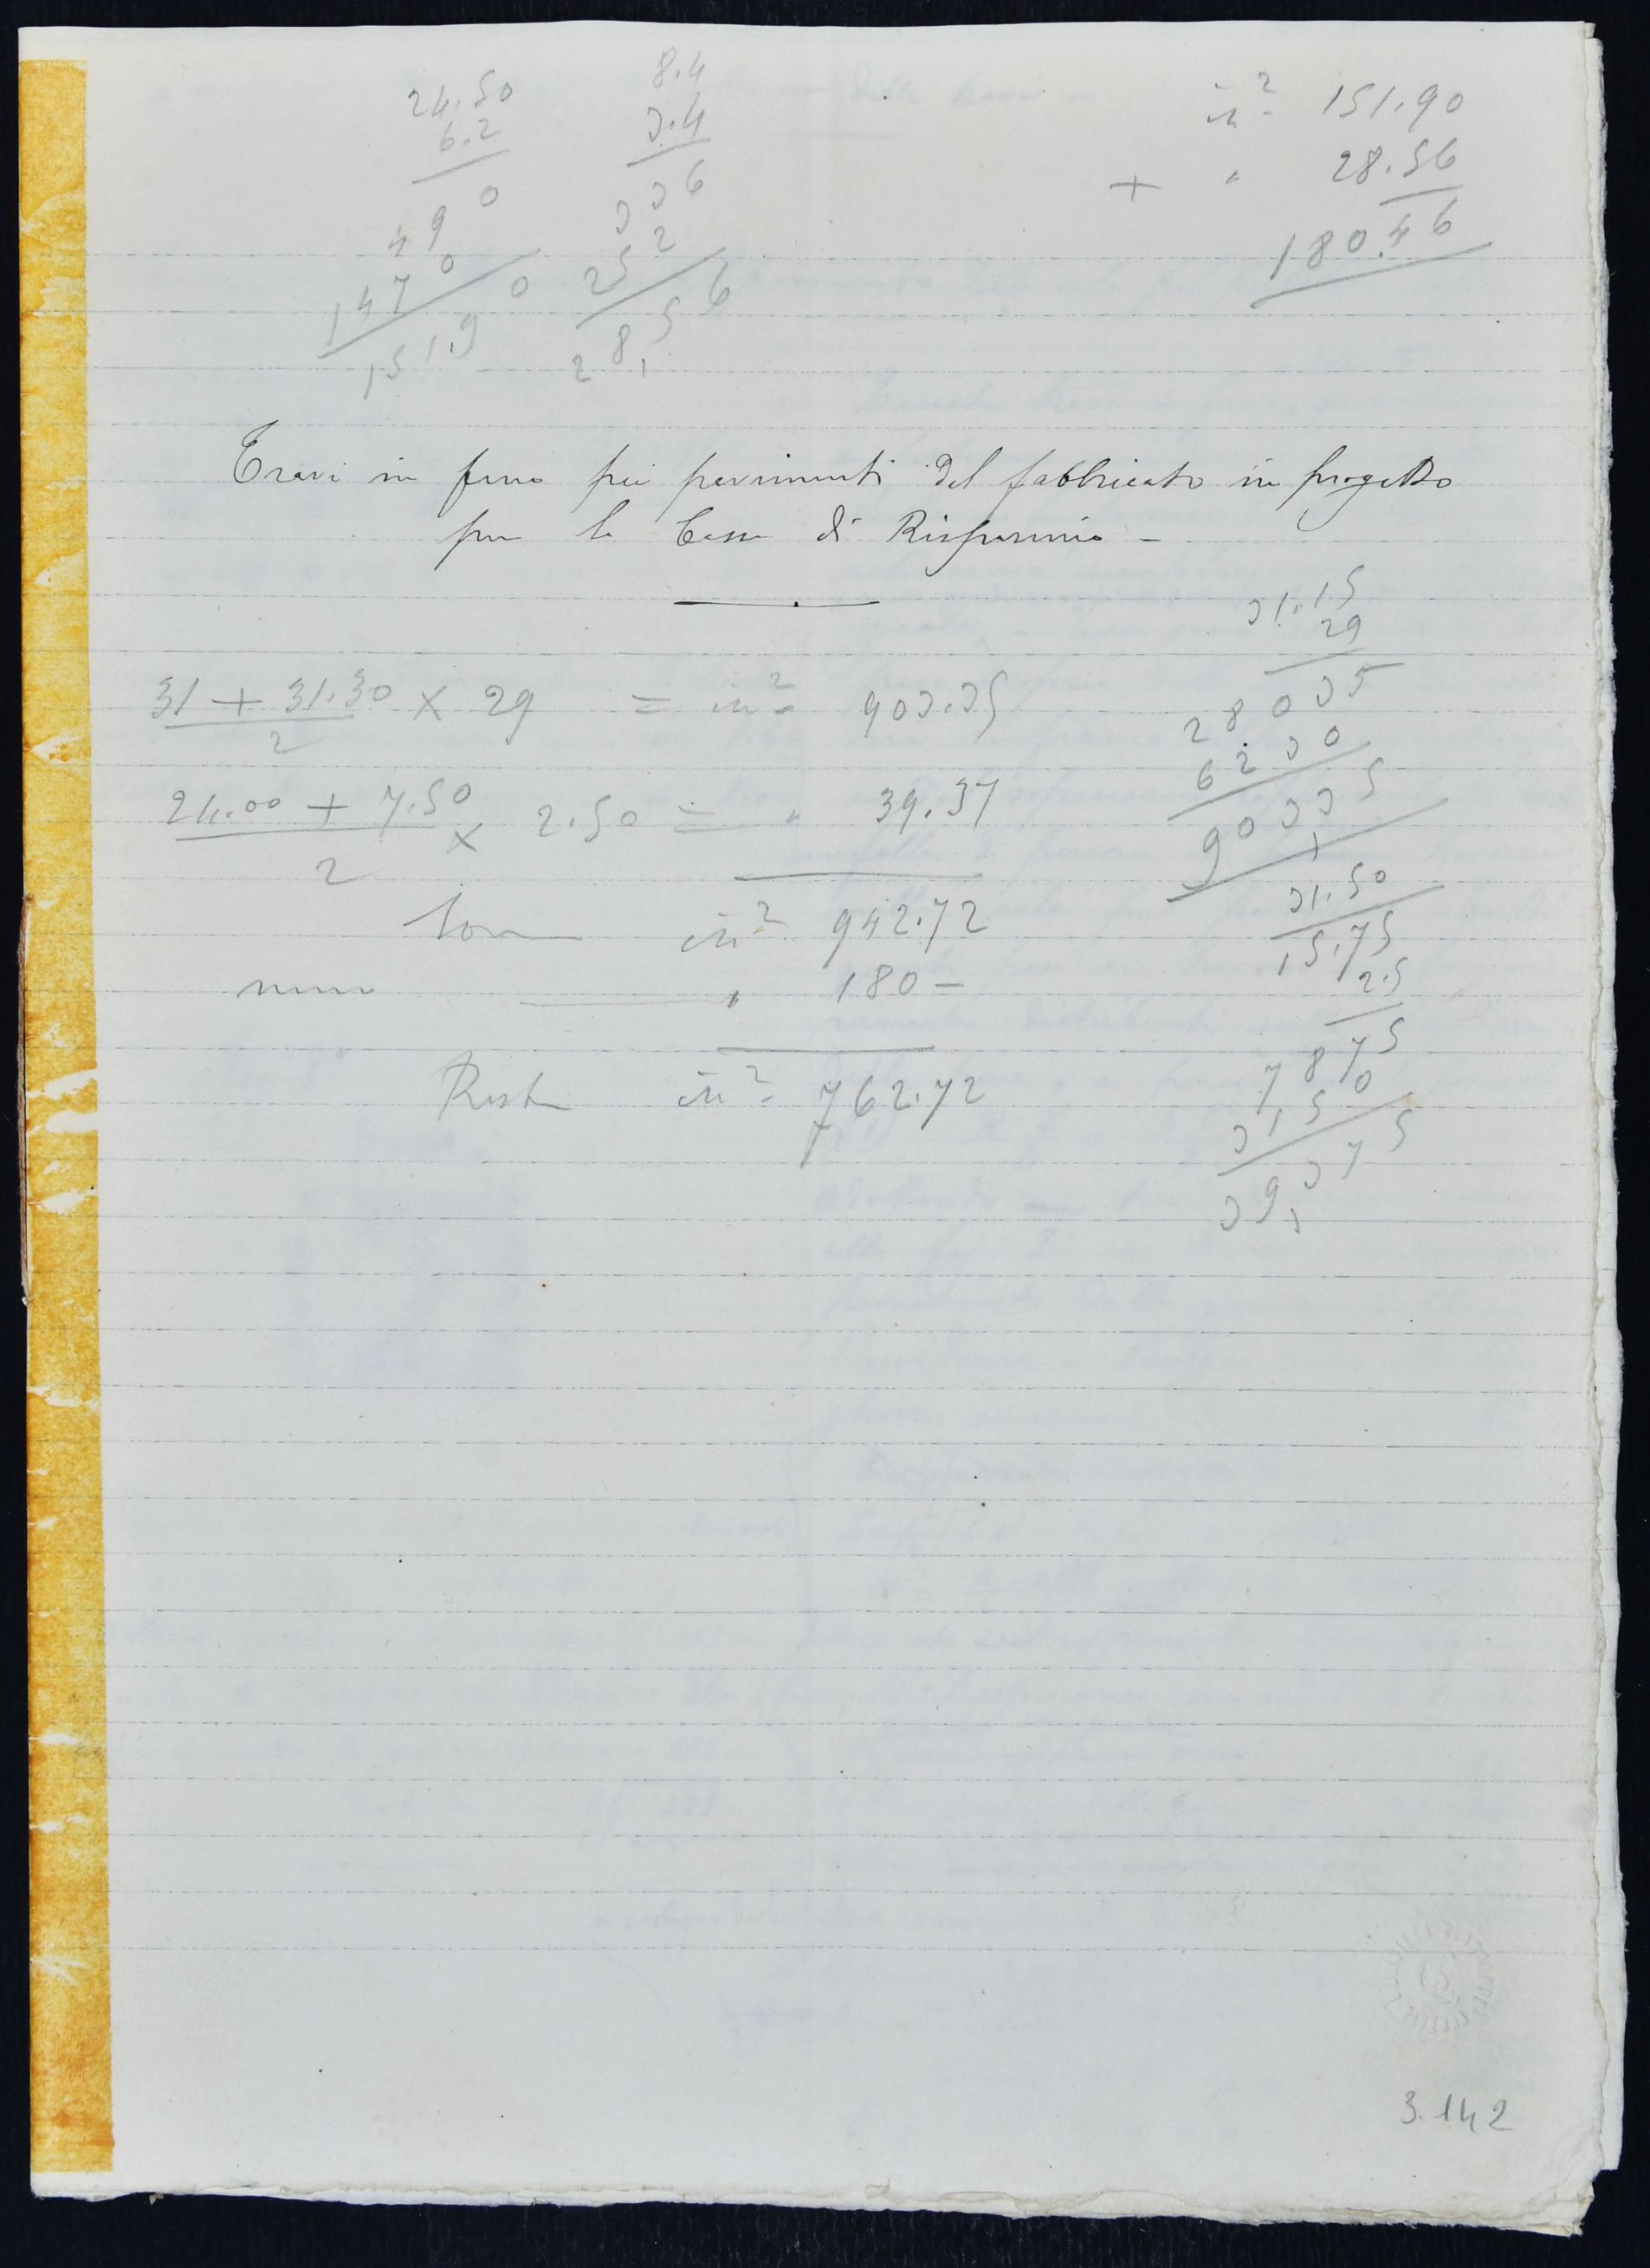 24.50
6.2
490
1470
151.90
8.4
3.4
336
252
28,56
m² 151.90
+ " 28.56
180.46
Travi in ferro pei pavimenti del fabbricato in progetto
per la Cassa di Risparmio -
31 + 31.30 × 29 = m² 903.35
2
24.00 + 7.50 × 2.50 = " 39.37
2
Som m² 942.72
meno " 180 -
Resta m² 762.72
31.15
29
28035
6230
90335
31.50
15.75
2.5
7875
3150
39,375
3.142